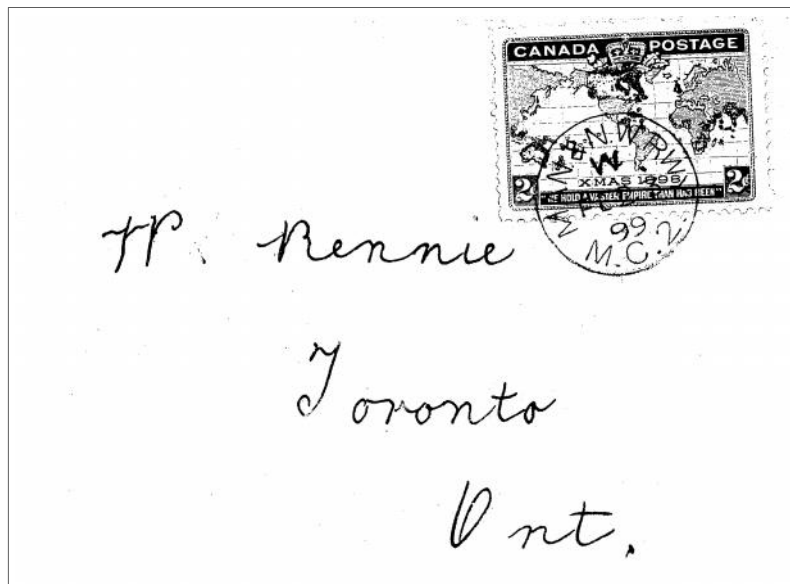 CANADA POSTAGE
XMAS 1898
2 2
"WE HOLD A VASTER EMPIRE THAN HAS BEEN"
MAN & N.W. RW
W
99
M.C. 2.
W. Rennie
Toronto
Ont.